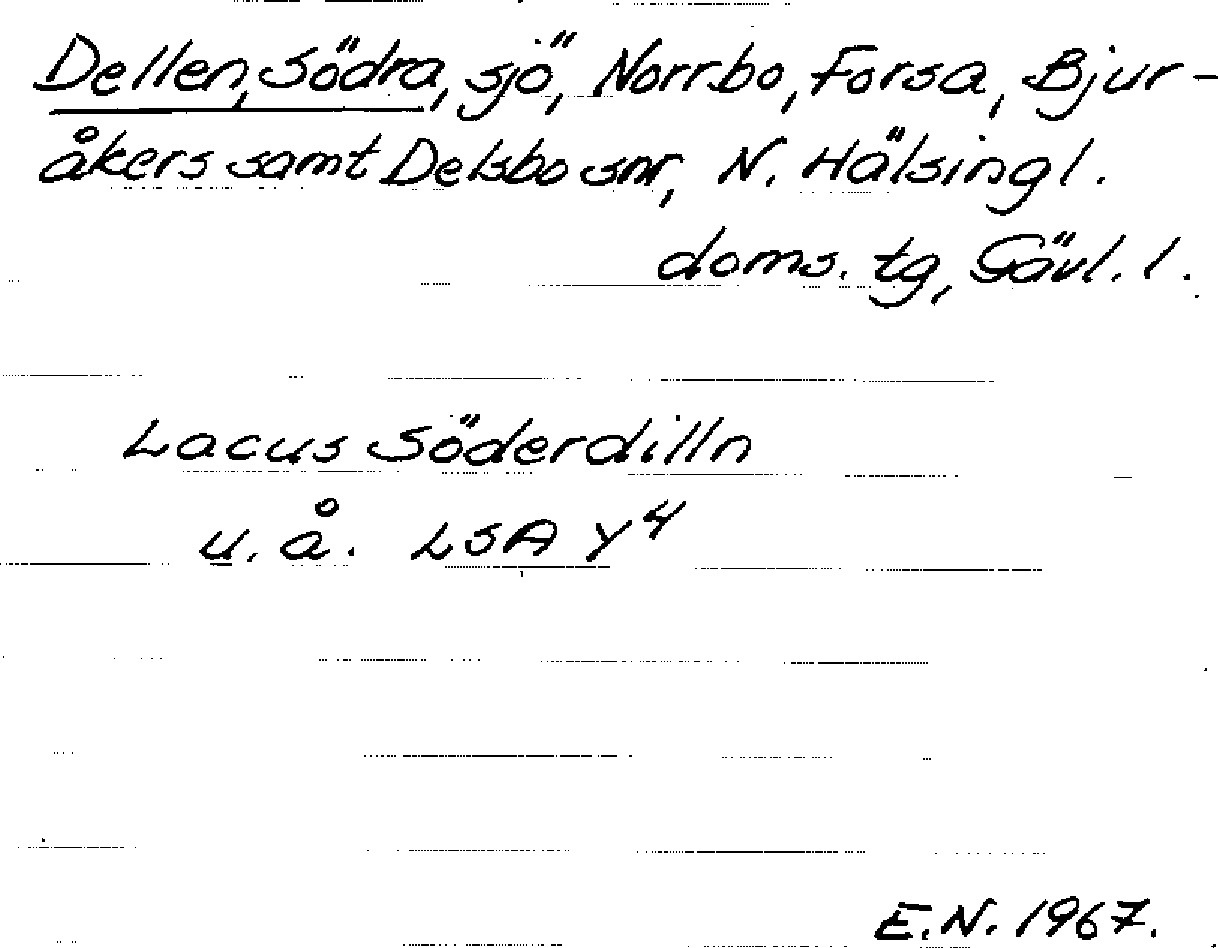 Dellen, Södra, sjö, Norrbo, Forsa, Bjur-
åkers samt Delsbo snr, N. Hälsingl.
doms. tg, Gävl. l.
Lacus Söderdilln
u. å. LSA Y 4
E.N. 1967.